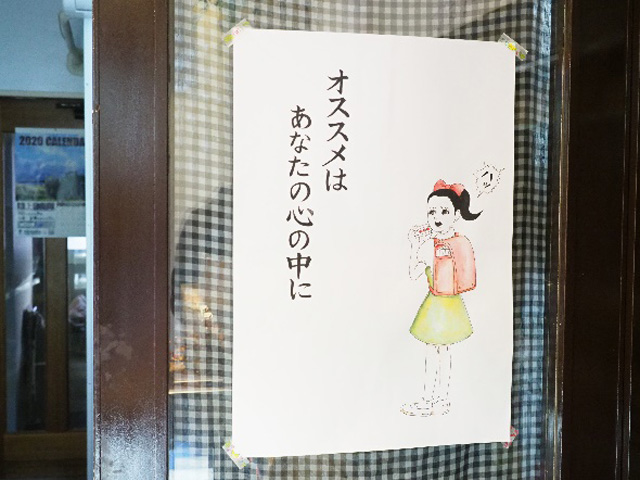 オススメは
あなたの心の中に
2020 CALENDAR